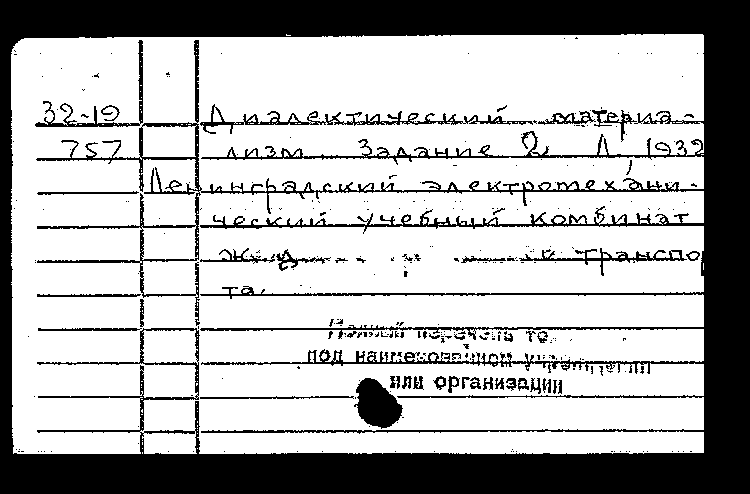 32-19 Диалектический материа-
757 лизм. Задание 2. Л., 1932
Ленинградский электротехани-
ческий учебный комбинат
транспор
та.
Полный перечень
под наименованием учреждения
или организации